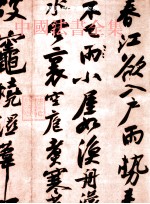 中國法書全集
春江欲入戶雨勢来
不已雨小屋如漁舟濛
水雲裏空庖煮寒
破竈燒濕葦